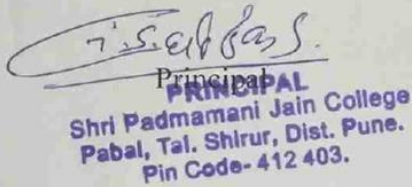 Principal
PRINCIPAL
Shri Padmamani Jain College
Pabal, Tal. Shirur, Dist. Pune.
Pin Code- 412 403.